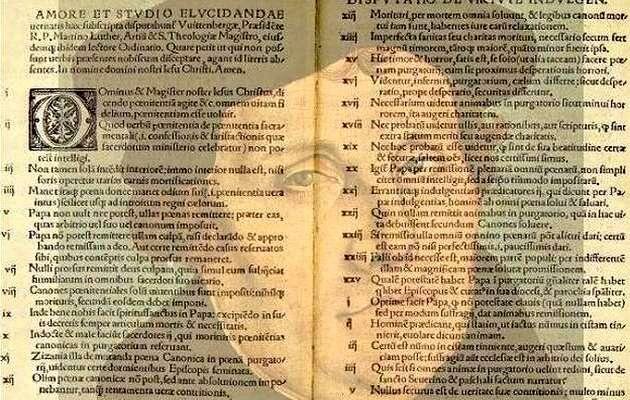 AMORE ET STVDIO ELVCIDANDAE
ueritatis hæc subscripta disputabunꝰ Vuittenbergæ, Præsidẽte
R. P. Martino Luther, Artiũ & S. Theologiæ Magistro, eius-
dem ibidem lectore Ordinario. Quare petit ut qui non pos-
sunt uerbis præsentes nobiscum disceptare, agant id literis ab-
sentes. In nomine domini nostri Iesu Christi, Amen.
i Dominus & Magister noster Iesus Christus, di
cendo pœnitentiã agite &c. omnem uitam fi
delium, pœnitentiam esse uoluit.
ij Quod uerbũ pœnitentia de pœnitentia sacra
mentali (i. confessionis & satisfactionis quæ
sacerdotum ministerio celebratur) non po
test intelligi.
iij Non tamen solã intẽdit interiorẽ: immo interior nulla est, nisi
foris operetur uarias carnis mortificationes.
iiij Manet itaq; pœna donec manet odium sui (.i. pœnitentia uera
intus) scilicet usq; ad introitum regni cælorum.
v Papa non uult nec potest, ullas pœnas remittere: præter eas,
quas arbitrio uel suo uel canonum imposuit.
vj Papa nõ potest remittere ullam culpã, nisi declarãdo & appro
bando remissam a deo. Aut certe remittẽdo casus reseruatos
sibi, quibus contẽptis culpa prorsus remaneret.
vij Nulli prorsus remittit deus culpam, quin simul eum subijciat
humiliatum in omnibus sacerdoti suo uicario.
viij Canones pœnitentiales solũ uiuentibus sunt impositi: nihilq;
morituris, secundũ eosdem debet imponi.
ix Inde bene nobis facit spiritussanctus in Papa: excipiẽdo in su-
is decretis semper articulum mortis & necessitatis.
x Indocte & male faciũt sacerdotes ij, qui morituris pœnitẽtias
canonicas in purgatorium reseruant.
xj Zizania illa de mutanda pœna Canonica in pœnã purgato-
rij, uidentur certe dormientibus Episcopis seminata.
xij Olim pœnæ canonicæ nõ post, sed ante absolutionem im po-
nebantur, tanquam tentamenta ueræ contritionis.
DISPVTATIO DE VIRTVTE INDVLGEN.
xiij Morituri, per mortem omnia soluunt, & legibus canonũ mor-
tui iam sunt, habentes iure earũ relaxationem.
xiiij Imperfecta sanitas seu charitas morituri, necessario secum fert
magnũ timorem, tãtoq; maiorẽ, quãto minor fuerit ipsa.
xv Hic timor & horror, satis est, se solo (ut alia taceam) facere pœ-
nam purgatorij: cum sit proximus desperationis horrori.
xvj Videntur, infernus, purgatoriũ, cælum differre: sicut despera-
tio, prope desperatio, securitas differunt.
xvij Necessarium uidetur animabus in purgatorio sicut minui hor-
rorem, ita augeri charitatem.
xviij Nec probatũ uidetur ullis, aut rationibus, aut scripturis, ꝙ sint
extra statum meriti seu augendæ charitatis.
xix Nec hoc probatũ esse uidetur, ꝙ sint de sua beatitudine certæ
& securæ, saltem oẽs, licet nos certissimi simus.
xx Igit̃ Papa per remissionẽ plenariã omniũ pœnarũ, non simpli
citer omniũ intelligit, sed a seipso tantũmodo impositarũ.
xxj Errant itaq; indulgentiarũ prædicatores ij, qui dicunt per Pa-
pæ indulgentias, hominẽ ab omni pœna solui & saluari.
xxij Quin nullam remittit animabus in purgatorio, quã in hac ui-
ta debuissent secundum Canones soluere.
xxiij Si remissio ulla omniũ omnino pœnarũ põt alicui dari: certũ
est eam nõ nisi perfectissimis .i. paucissimis dari.
xxiiij Falli ob id necesse est, maiorem partem populi: per indifferentẽ
illam & magnificam pœnæ solutæ promissionem.
xxv Qualẽ potestatẽ habet Papa ĩ purgatoriũ gñaliter talẽ habet
quilibet Episcopus & curatꝰ in sua diœcesi, & parochia spãliter.
i Optime facit Papa, ꝙ nõ potestate clauis (quã nullam habet)
sed per modum suffragij, dat animabus remissionem.
ij Hominẽ prædicant, qui statim, ut iactus nũmus in cistam tin-
nierit, euolare dicunt animam.
iij Certũ est nũmo in cistam tinniente, augeri quæstum & auari-
ciam posse: suffragiũ aũt ecclesiæ est in arbitrio dei solius.
iiij Quis scit si omnes animæ in purgatorio uelint redimi, sicut de
sancto Seuerino & paschali factum narratur.
v Nullus securus est de ueritate suæ contritionis: multo minus